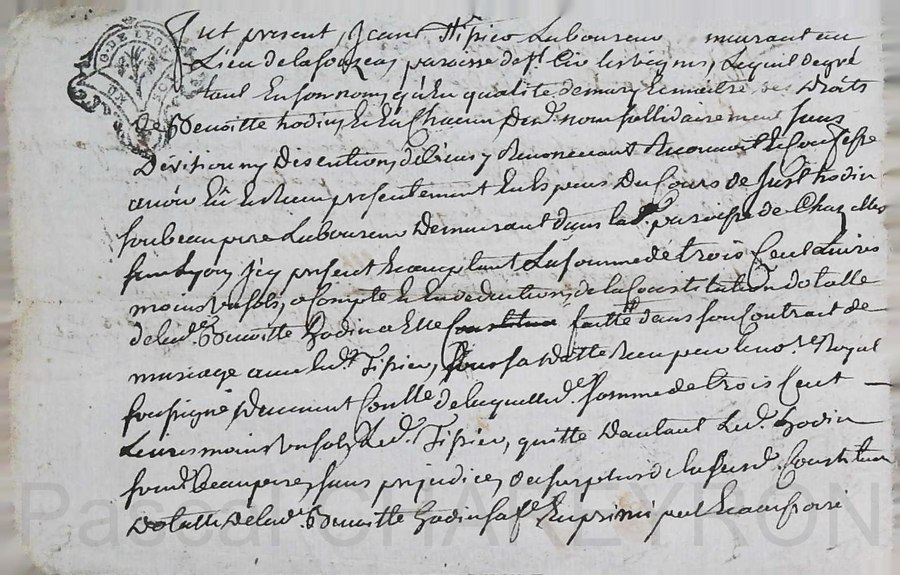 fut present, Jean Tissier Laboureur demurant au
Lieu de la fouzeas, paroisse de St. Cire les vignes, Lequel de gré
tant En son nom, qu'En qualite de mary Et maitre des Droits
de Benoitte hodin, Et En Chacun Des d. nom sollidairement sans
Division ny Discution, de biens y Renoncant Reconnoit Et Confesse
avoir Eû Et Reçu presentement En Espeses Du Cours de Just hodin
son beau pere Laboureur Demeurant dans la d. paroisse de Chazelles
sur Lyon Icy present Et acceptant La somme de trois Cent Livres
moins un sols, a Compte Et En deduction, de la Constitution dotalle
de lad. Benoitte hodin a Elle faitte dans son Contrat de
mariage avec led. Tissier, sous sa datte Reçu par le no.re Royal
soussigné, Deument Conlle de laquelle d. somme de trois Cent
Livres moins un sols, Led. Tissier, quitte D'autant Led. hodin
son d. Beau pere, sans prejudice, du surplus de la susd. Constitution
Dotalle de lad. Benoitte hodin sa fe.
Pascal CHAREYRON